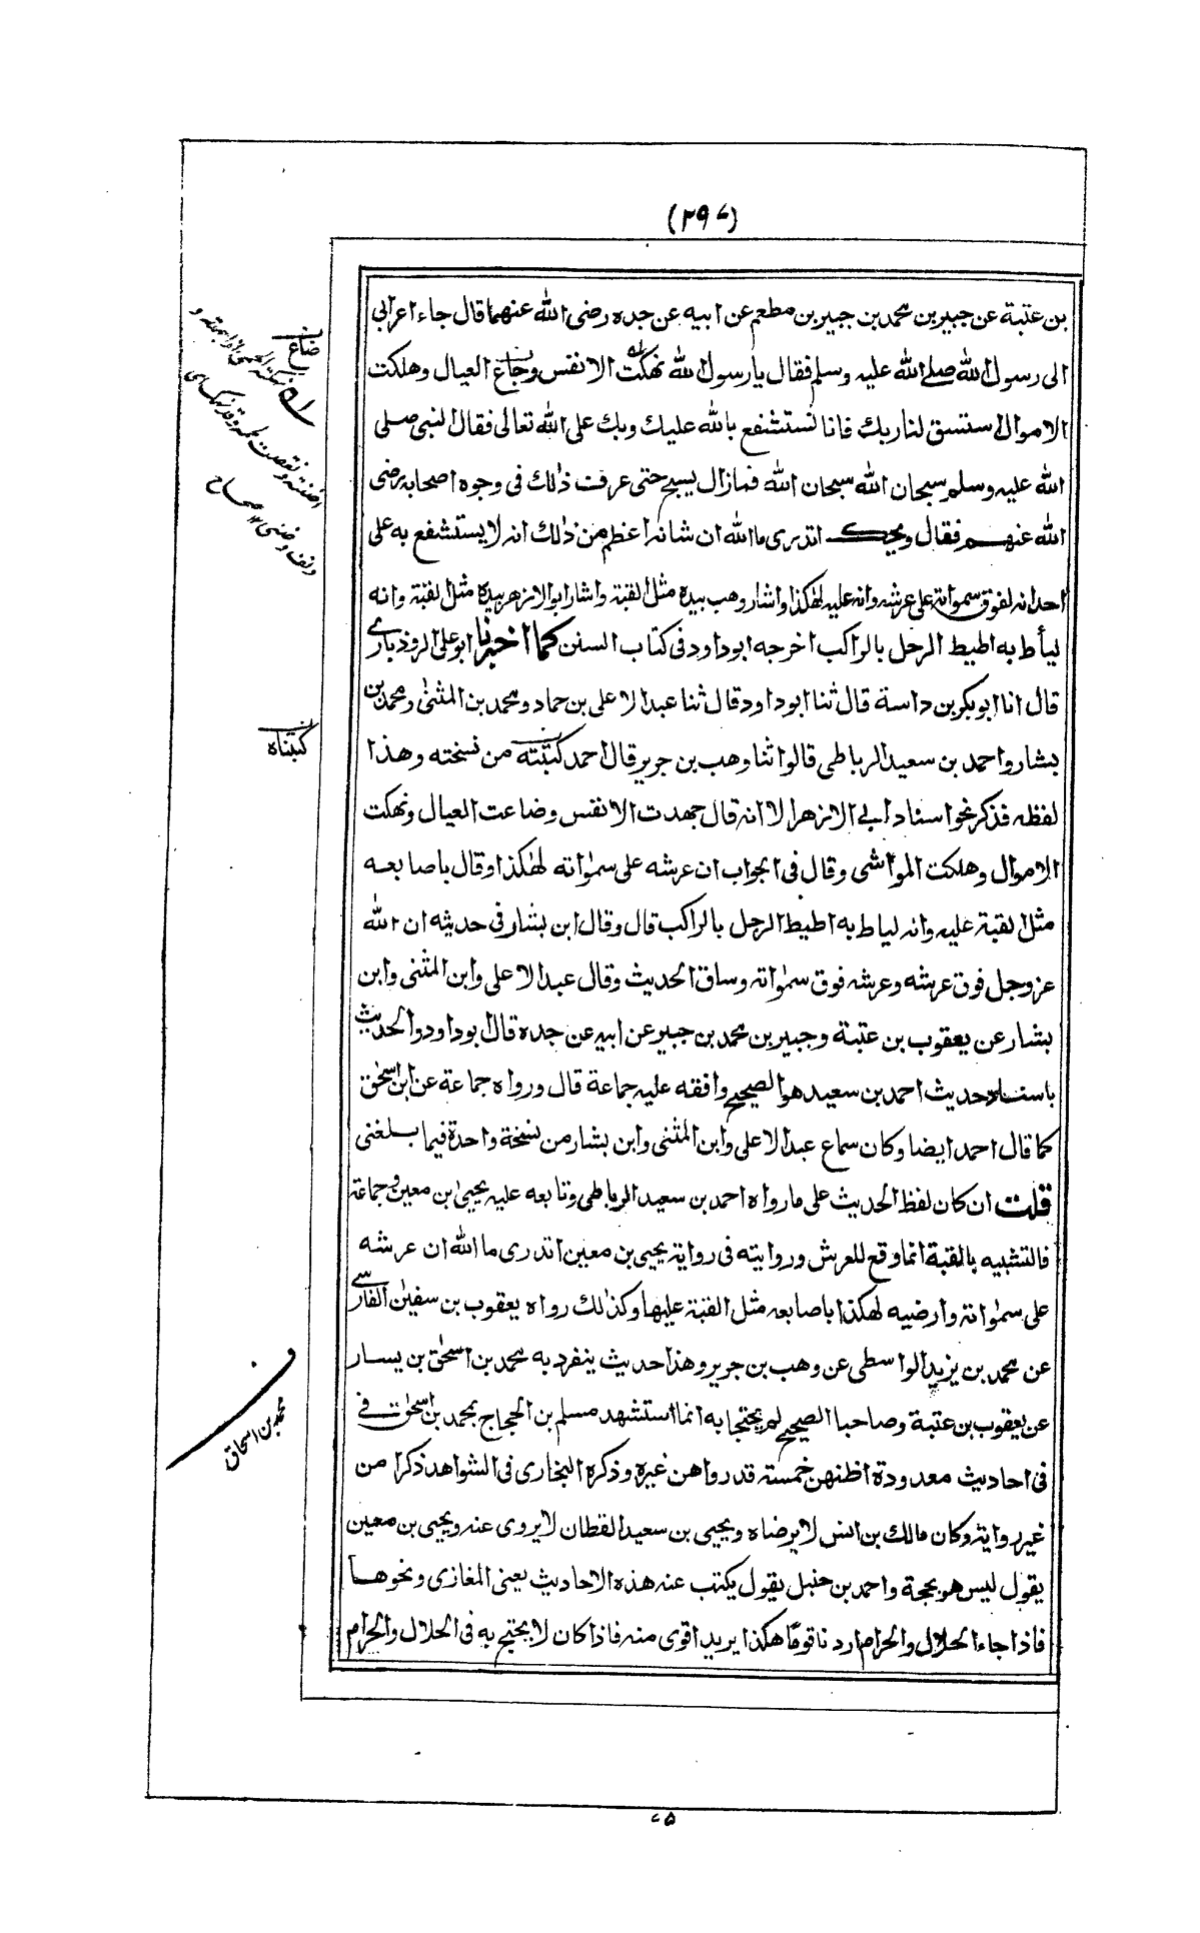 (٢٩٧)
بن عتبة عن جبير بن محمد بن جبير بن مطعم عن ابيه عن جده رضى الله عنهما قال جاء اعرابى
الى رسول الله صلى الله عليه وسلم فقال يا رسول الله نهكت الانفس وجاع العيال وهلكت
الاموال استسق لنا ربك فانا نستشفع بالله عليك وبك على الله تعالى فقال النبى صلى
الله عليه وسلم سبحان الله سبحان الله فمازال يسبح حتى عرفت ذلك فى وجوه اصحابه رضى
الله عنهم فقال ويحك اتدرى ما الله ان شانه اعظم من ذلك انه لا يستشفع به على
احد انه لفوق سمواته على عرشه وانه عليه لهكذا واشار وهب بيده مثل القبة واشار ابو الازهر بيده مثل القبة وانه
ليأط به اطيط الرحل بالراكب اخرجه ابو داود فى كتاب السنن كما اخبرنا ابو على الروذبارى
قال انا ابو بكر بن داسة قال ثنا ابو داود قال ثنا عبد الاعلى بن حماد ومحمد بن المثنى ومحمد بن
بشار واحمد بن سعيد الرباطى قالوا ثنا وهب بن جرير قال احمد كتبته من نسخته وهذا
لفظه فذكر نحو اسناد ابى الازهر الا انه قال جهدت الانفس وضاعت العيال ونهكت
الاموال وهلكت المواشى وقال فى الجواب ان عرشه على سمواته لهكذا وقال باصابعه
مثل القبة عليه وانه لياط به اطيط الرحل بالراكب قال وقال ابن بشار فى حديثه ان الله
عز وجل فوق عرشه وعرشه فوق سمواته وساق الحديث وقال عبد الاعلى وابن المثنى وابن
بشار عن يعقوب بن عتبة وجبير بن محمد بن جبير عن ابيه عن جده قال ابو داود والحديث
باسناد حديث احمد بن سعيد هو الصحيح وافقه عليه جماعة قال ورواه جماعة عن ابن اسحق
كما قال احمد ايضا وكان سماع عبد الاعلى وابن المثنى وابن بشار من نسخة واحدة فيما بلغنى
قلت ان كان لفظ الحديث على ما رواه احمد بن سعيد الرباطى وتابعه عليه يحيى بن معين وجماعة
فالتشبيه بالقبة انما وقع للعرش وروايته فى رواية يحيى بن معين اتدرى ما الله ان عرشه
على سمواته وارضيه لهكذا باصابعه مثل القبة عليها وكذلك رواه يعقوب بن سفين الفارسى
عن محمد بن يزيد الواسطى عن وهب بن جرير وهذا حديث ينفرد به محمد بن اسحق بن يسار
عن يعقوب بن عتبة وصاحبا الصحيح لم يحتجا به انما استشهد مسلم بن الحجاج بمحمد بن اسحق فى
فى احاديث معدودة اظنهن خمسة قد رواهن غيره وذكره البخارى فى الشواهد ذكرا من
غير رواية وكان مالك بن انس لا يرضاه ويحيى بن سعيد القطان لا يروى عنه ويحيى بن معين
يقول ليس هو بحجة واحمد بن حنبل يقول يكتب عنه هذه الاحاديث يعنى المغازى ونحوها
فاذا جاء الحلال والحرام اردنا قوما هكذا يريد اقوى منه فاذا كان لا يحتج به فى الحلال والحرام
ضاع
كتبناه
محمد بن اسحاق
٧٥